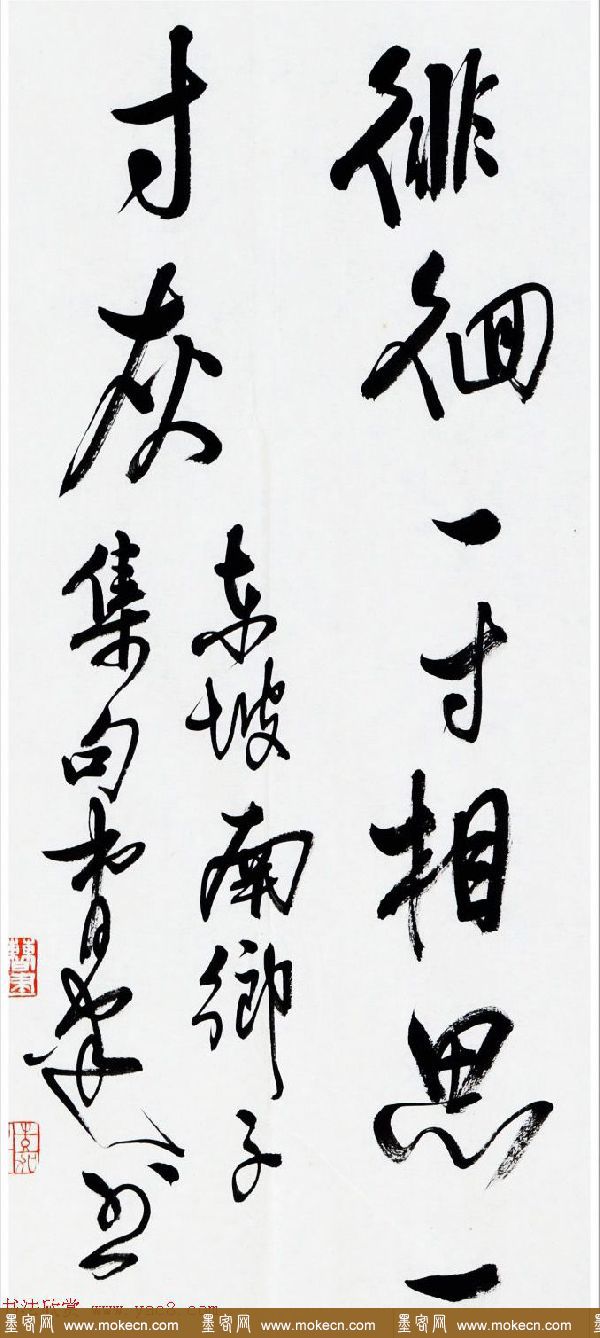 徘徊一寸相思一
寸灰
东坡南乡子
集句
书法欣赏 www.yac8.com
墨客网 www.mokecn.com 墨客网 www.mokecn.com 墨客网 www.mokecn.com